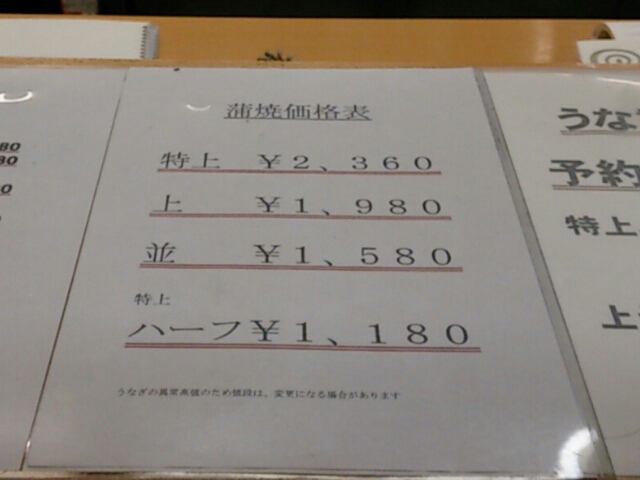 蒲焼価格表
特上 ¥2、360
上 ¥1、980
並 ¥1、580
特上
ハーフ¥1、180
うなぎの異常高値のため値段は、変更になる場合があります
80
80
0
うな
予約
特上
上